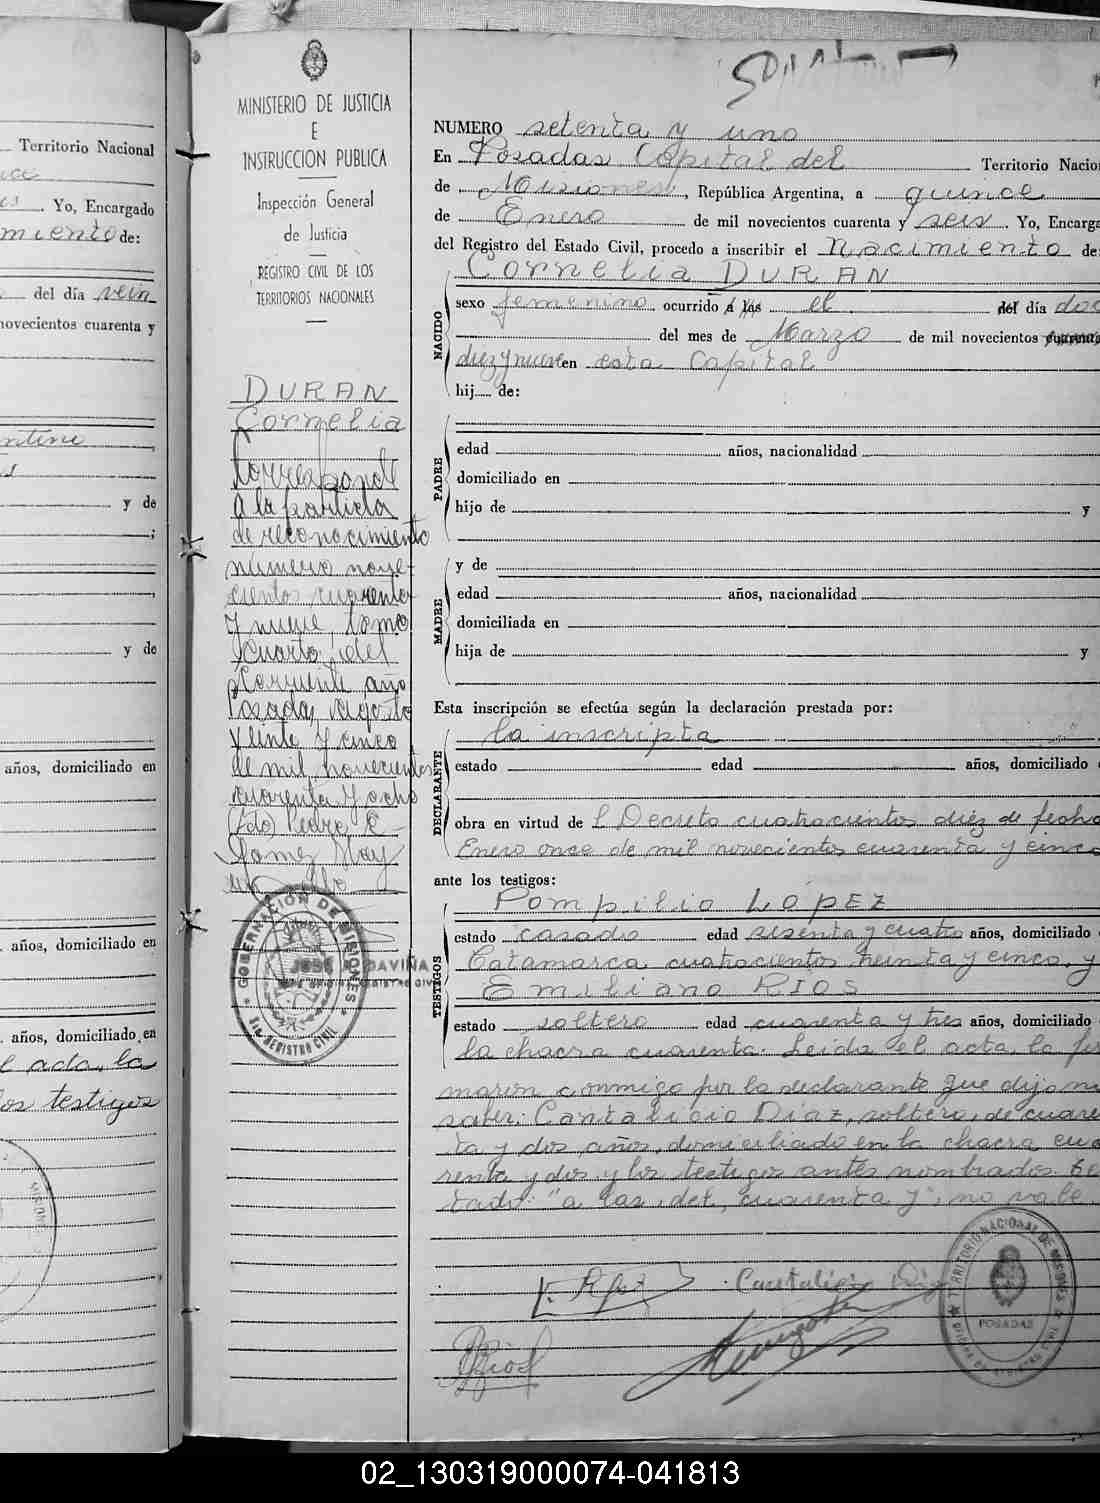 Territorio Nacional
Yo, Encargado
miento de:
del día vein
novecientos cuarenta y
y de
;
y de
años, domiciliado en
años, domiciliado en
años, domiciliado en
acta, la
los testigos
MINISTERIO DE JUSTICIA
E
INSTRUCCION PUBLICA
Inspección General
de Justicia
REGISTRO CIVIL DE LOS
TERRITORIOS NACIONALES
DURAN
Cornelia
Corresponde
a la partida
de reconocimiento
número nove-
cientos cuarenta
y nueve, tomo
cuarto, del
corriente año
Posadas, agosto
veinte y cinco
de mil novecientos
cuarenta y ocho
(Fdo) Pedro E
Gomez
GOBERNACIÓN DE MISIONES
REGISTRO CIVIL
NUMERO setenta y uno
En Posadas Capital del Territorio Nacion
de Misiones, República Argentina, a quince
de Enero de mil novecientos cuarenta y seis. Yo, Encarga
del Registro del Estado Civil, procedo a inscribir el Nacimiento de:
Cornelia DURAN
NACIDO
sexo femenino ocurrido a las el del día dos
del mes de Marzo de mil novecientos cuarenta
diez y nueve en esta Capital
hij de:
PADRE
edad años, nacionalidad
domiciliado en
hijo de y
MADRE
y de
edad años, nacionalidad
domiciliada en
hija de y
Esta inscripción se efectúa según la declaración prestada por:
DECLARANTE
la inscripta
estado edad años, domiciliado
obra en virtud de l Decreto cuatrocientos diez de fecha
Enero once de mil novecientos cuarenta y cinco
ante los testigos:
TESTIGOS
Pompilio LOPEZ
estado casado edad sesenta y cuatro años, domiciliado
Catamarca cuatrocientos treinta y cinco, y
Emiliano RIOS
estado soltero edad cuarenta y tres años, domiciliado
la chacra cuarenta. Leida el acta, la fir
maron conmigo por la declarante que dijo no
saber: Cantalicio Diaz, soltero, de cuaren
ta y dos años, domiciliado en la chacra cua
renta y dos y los testigos antes nombrados. Tes
tado: "a las, del, cuarenta y", no vale.
TERRITORIO NACIONAL DE MISIONES
POSADAS
02_130319000074-041813